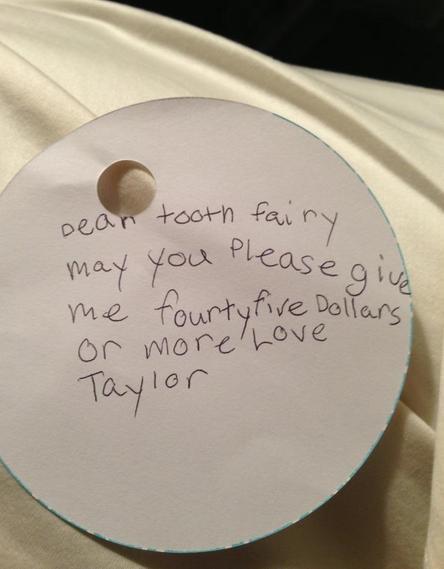 Dear tooth fairy
may you Please give
me fourtyfive Dollars
or more Love
Taylor